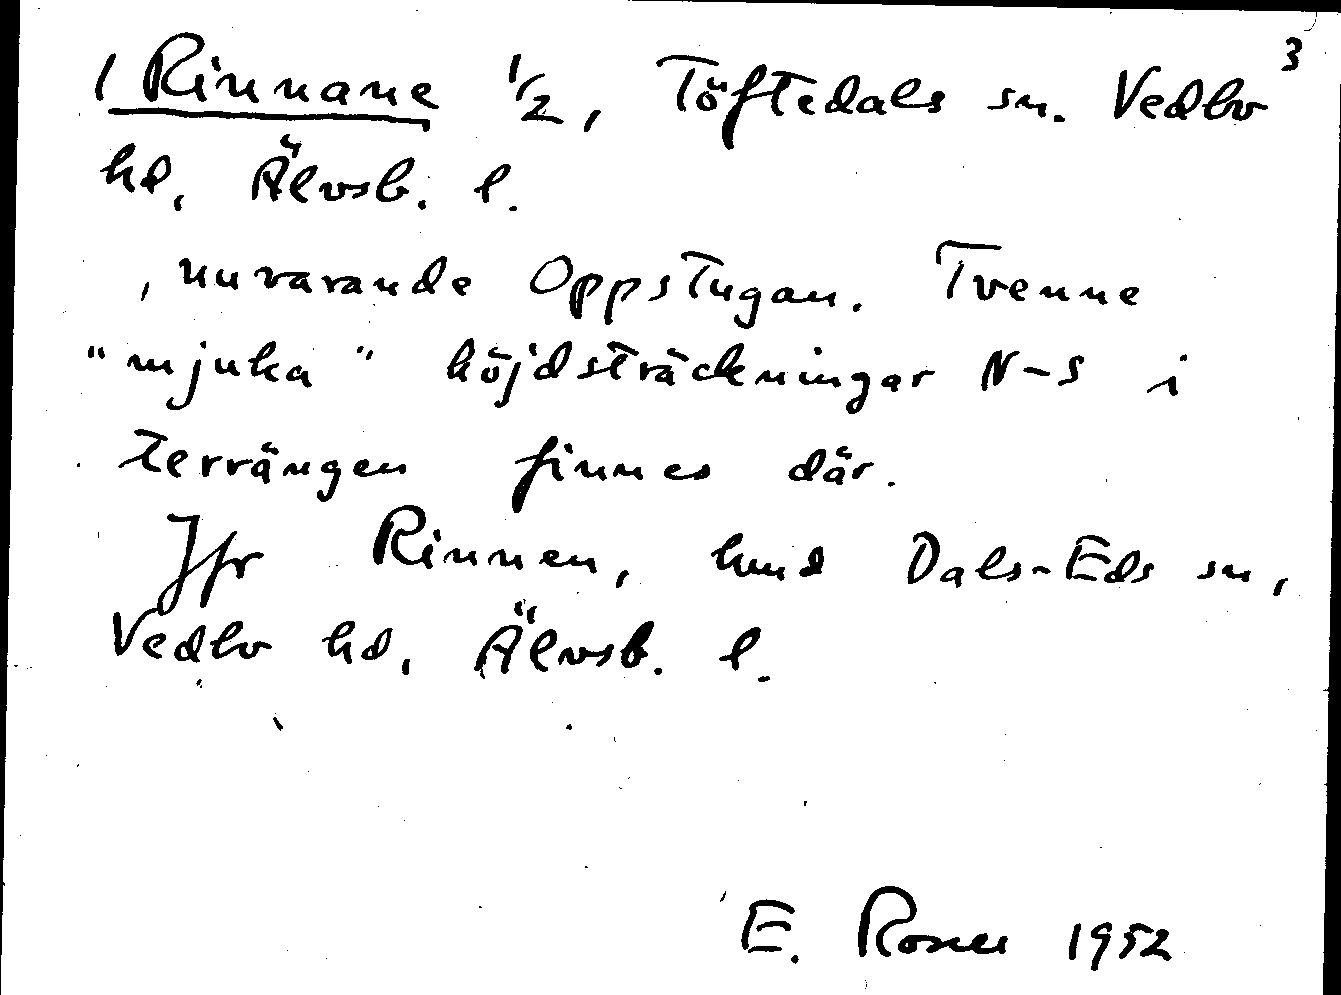 3
1 Rinnane 1/2, Töftedals sn. Vedbo
hd, Älvsb. l.
, nuvarande Oppstugan. Tvenne
"mjuka" höjdsträckningar N-S i
terrängen finnes där.
Jfr Rinnen, hmd Dals-Eds sn,
Vedbo hd, Älvsb. l.
E. Rosell 1952